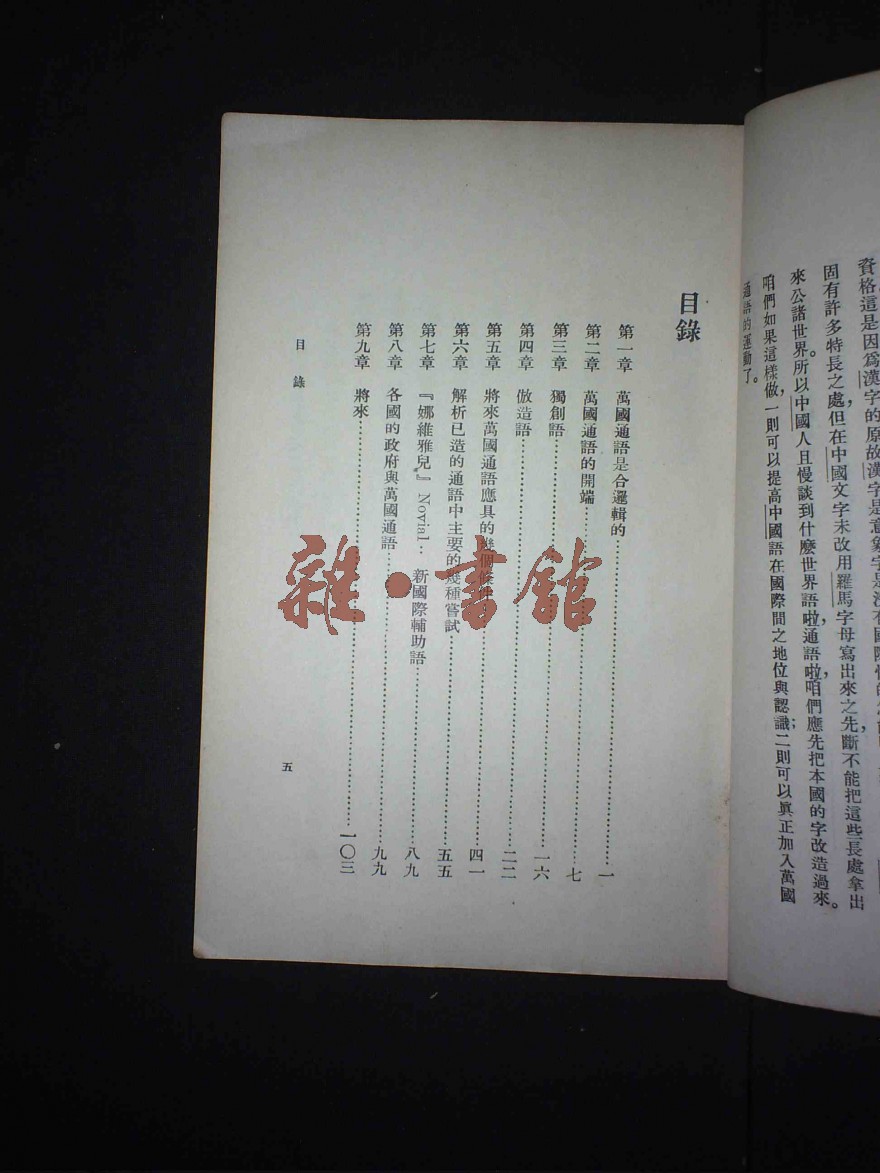 資格這是因爲漢字的原故漢字是意象字是沒有國際性的
固有許多特長之處，但在中國文字未改用羅馬字母寫出來之先，斷不能把這些長處拿出
來公諸世界。所以中國人且慢談到什麼世界語啦，通語啦，咱們應先把本國的字改造過來。
咱們如果這樣做，一則可以提高中國語在國際間之地位與認識；二則可以眞正加入萬國
通語的運動了。
目錄
第一章 萬國通語是合邏輯的……一
第二章 萬國通語的開端……七
第三章 獨創語……一六
第四章 倣造語……二二
第五章 將來萬國通語應具的幾個條件……四一
第六章 解析已造的通語中主要的幾種嘗試……五五
第七章 『娜維雅兒』Novial：新國際輔助語……八九
第八章 各國的政府與萬國通語……九九
第九章 將來……一〇三
目錄
五
雜·書館